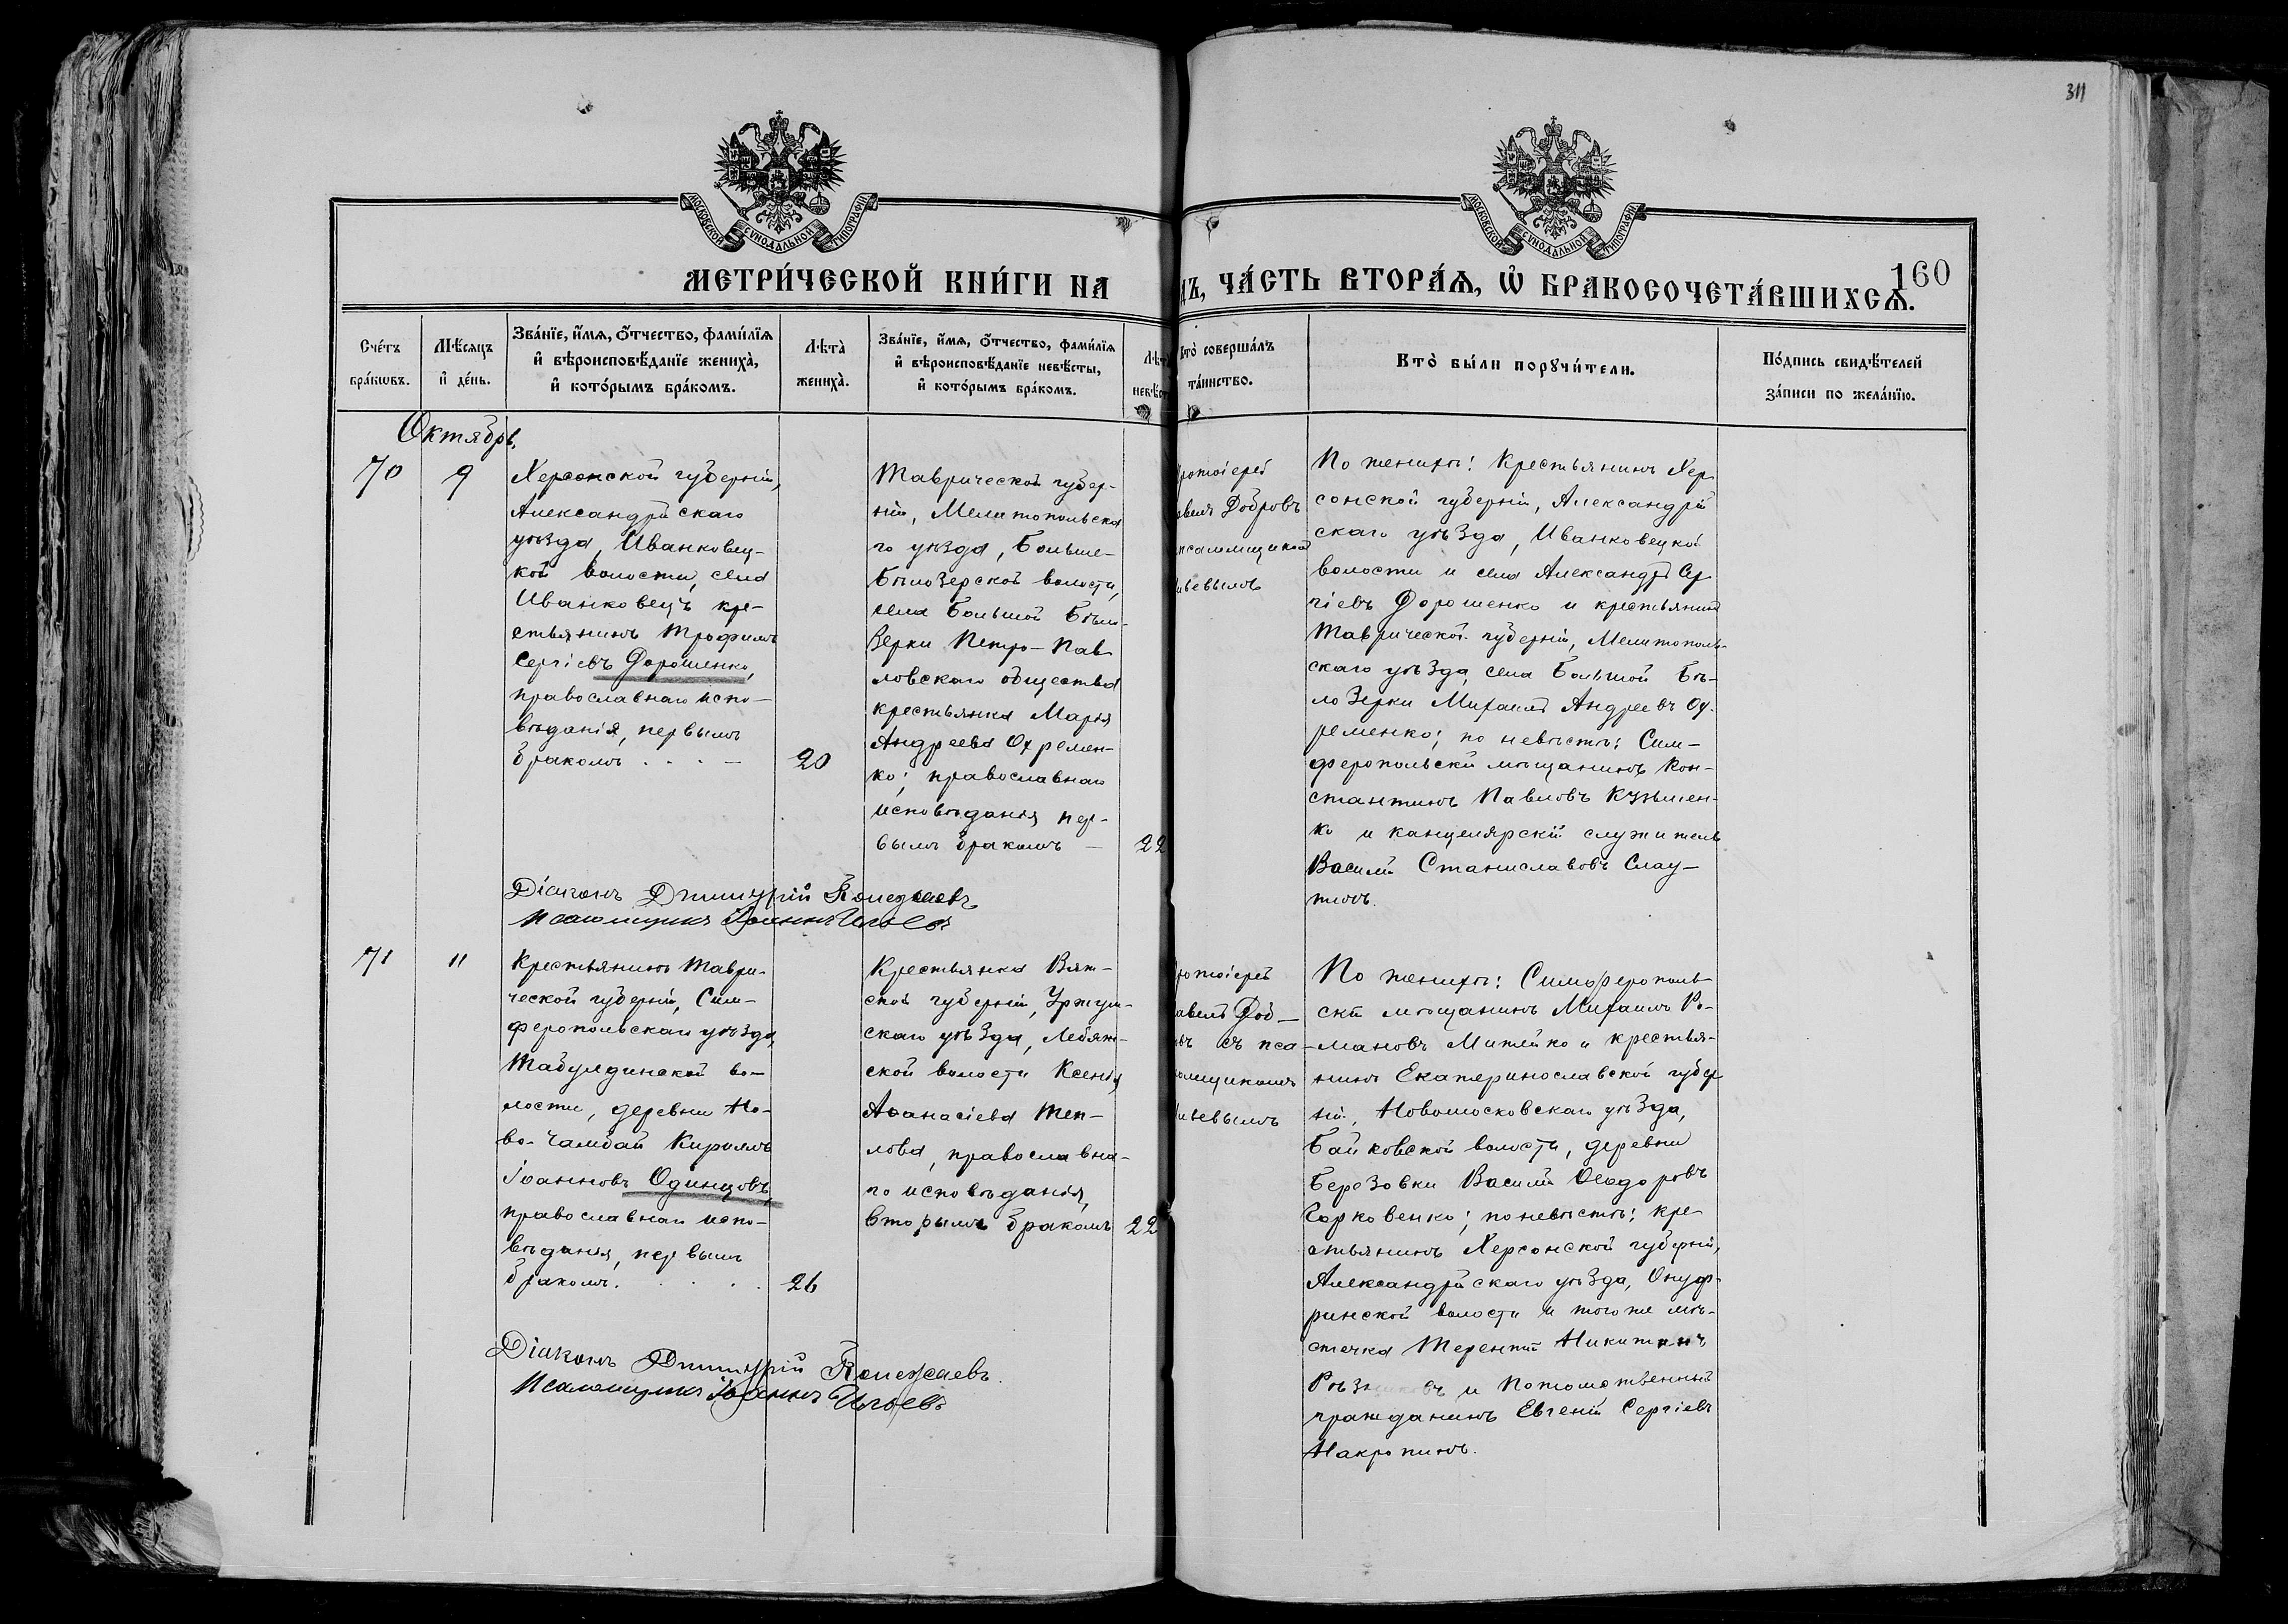 311
МОСКОВСКОЙ СѴНОДАЛЬНОЙ ТИПОГРАФІИ
МОСКОВСКОЙ СѴНОДАЛЬНОЙ ТИПОГРАФІИ
МЕТРИ́ЧЕСКОЙ КНИ́ГИ НА
ДЪ, ЧА́СТЬ ВТОРА́Ѧ, Ѽ БРАКОСОЧЕТА́ВШИХСѦ.
160
Сче́тъ
бра́кωвъ.
Мѣ́сяцъ
и҆ де́нь.
Зва́нїе, и҆́мѧ, ѻ҆́тчество, фами́лїѧ
и҆ вѣроисповѣ́данїе жениха̀,
и҆ кото́рымъ бра́комъ.
Лѣта̀
жениха̀.
Зва́нїе, и҆́мѧ, ѻ҆́тчество, фами́лїѧ
и҆ вѣроисповѣ́данїе невѣ́сты,
и҆ кото́рымъ бра́комъ.
Лѣта̀
невѣ́ст
Кто̀ соверша́лъ
та́инство.
Кто̀ бы́ли порꙋчи́тели.
По́дпись свидѣ́телей
за́писи по жела́нїю.
Октябрь.
70
9
Херсонской губерніи,
Александрійскаго
уѣзда, Иванковец-
кой волости, села
Иванковецъ кре-
стьянинъ Трофимъ
Сергіевъ Дорошенко,
православнаго испо-
вѣданія, первымъ
бракомъ . . . —
20
Таврической губер-
ніи, Мелитопольска
го уѣзда, Больше-
Бѣлозерской волости,
села Большой Бѣло-
зерки Петро-Пав
ловскаго общества
крестьянка Марія
Андреева Охремен-
ко; православнаго
исповѣданія пер-
вымъ бракомъ —
22
ротоіерей
авелъ Добровъ
псаломщикомъ
льевымъ
По женихѣ: Крестьянинъ Хер
сонской губерніи, Александрій
скаго уѣзда, Иванковецкой
волости и села Александръ Сер
гіевъ Дорошенко и крестьянинъ
Таврической губерніи, Мелитополь-
скаго уѣзда, села Большой Бѣ-
лозерки Михаилъ Андреевъ Ох-
ременко; по невѣстѣ: Сим-
феропольскій мѣщанинъ Кон-
стантинъ Павловъ Кузьмен-
ко и канцелярскій служитель
Василій Станиславовъ Слау-
тинъ.
Діаконъ Дмитрій Полежаевъ
Псаломщикъ Іоаннъ Ильевъ
71
11
Крестьянинъ Таври-
ческой губерніи, Сим-
феропольскаго уѣзда,
Табулдинской во-
лости, деревни Но-
во-Чамбай Кириллъ
Іоанновъ Одинцовъ,
православнаго испо-
вѣданія, первымъ
бракомъ. . . .
26
Крестьянка Вят-
ской губерніи, Уржум-
скаго уѣзда, Лебяж-
ской волости Ксенія
Аѳанасіева Теп-
лова, православна-
го исповѣданія,
вторымъ бракомъ
22
ротоіерей
авелъ Доб-
овъ съ пса-
ломщикомъ
льевымъ
По женихѣ: Симферополь-
скій мѣщанинъ Михаилъ Ро-
мановъ Митейко и крестья-
нинъ Екатеринославской губер
ніи, Новомосковскаго уѣзда,
Байковской волости, деревни
Березовки Василій Ѳеодоровъ
Горковенко; по невѣстѣ: кре-
стьянинъ Херсонской губерніи,
Александрійскаго уѣзда, Онуф-
ріинской волости и того же мѣ-
стечка Терентій Никитинъ
и потомственный
гражданинъ Евгеній Сергіевъ
Накропинъ.
Діаконъ Дмитрій Полежаевъ.
Псаломщикъ Іоаннъ Ильевъ